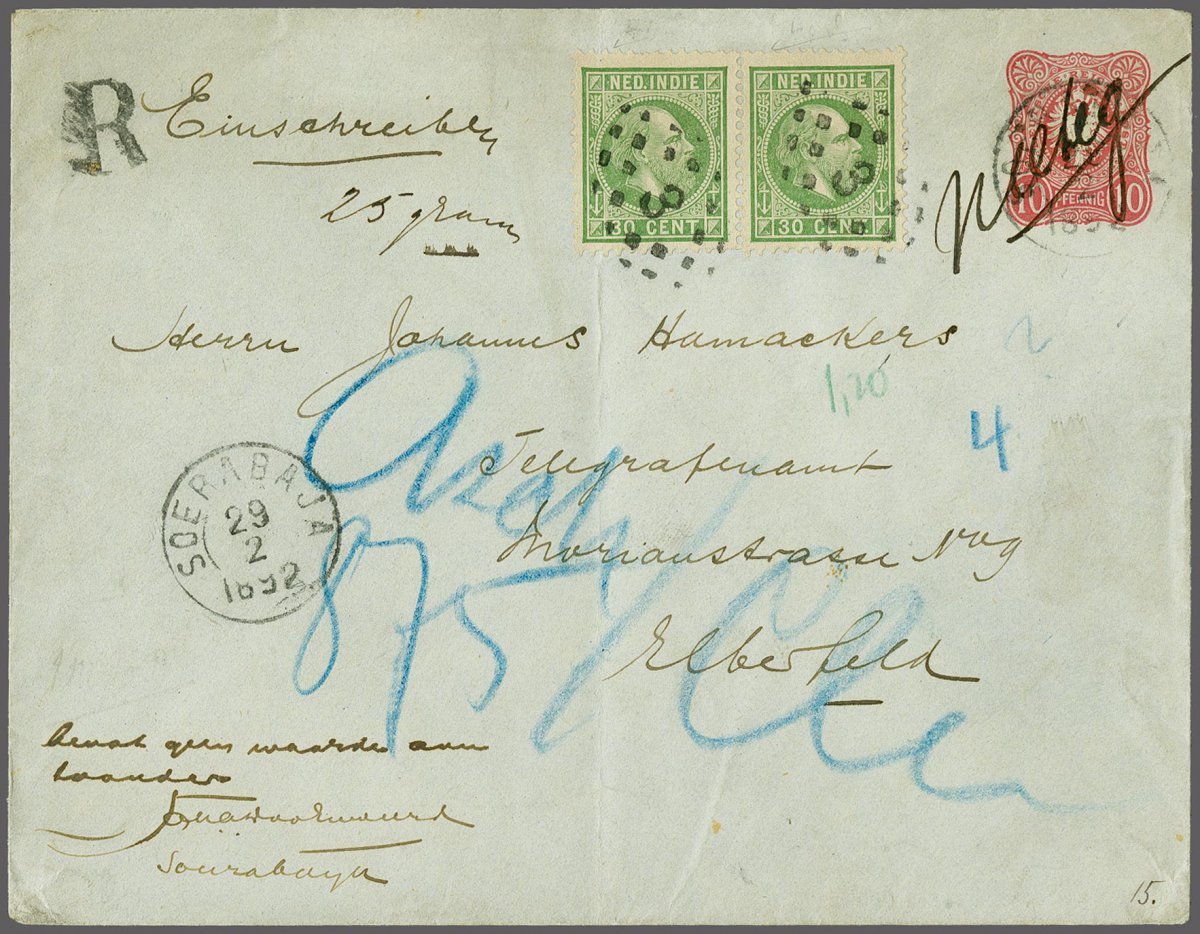 R
Einschreiben
25 gram
NED. INDIE
3
30 CENT
NED. INDIE
3
30 CENT
10 PFENNIG 10
1892
Herrn Johannes Hamackers
1,20
4
Telegrafenamt
Morianstrasse
Elberfeld
SOERABAJA
29
2
1892
875
bevat geen waarde aan
toonder
Sourabaya
15.